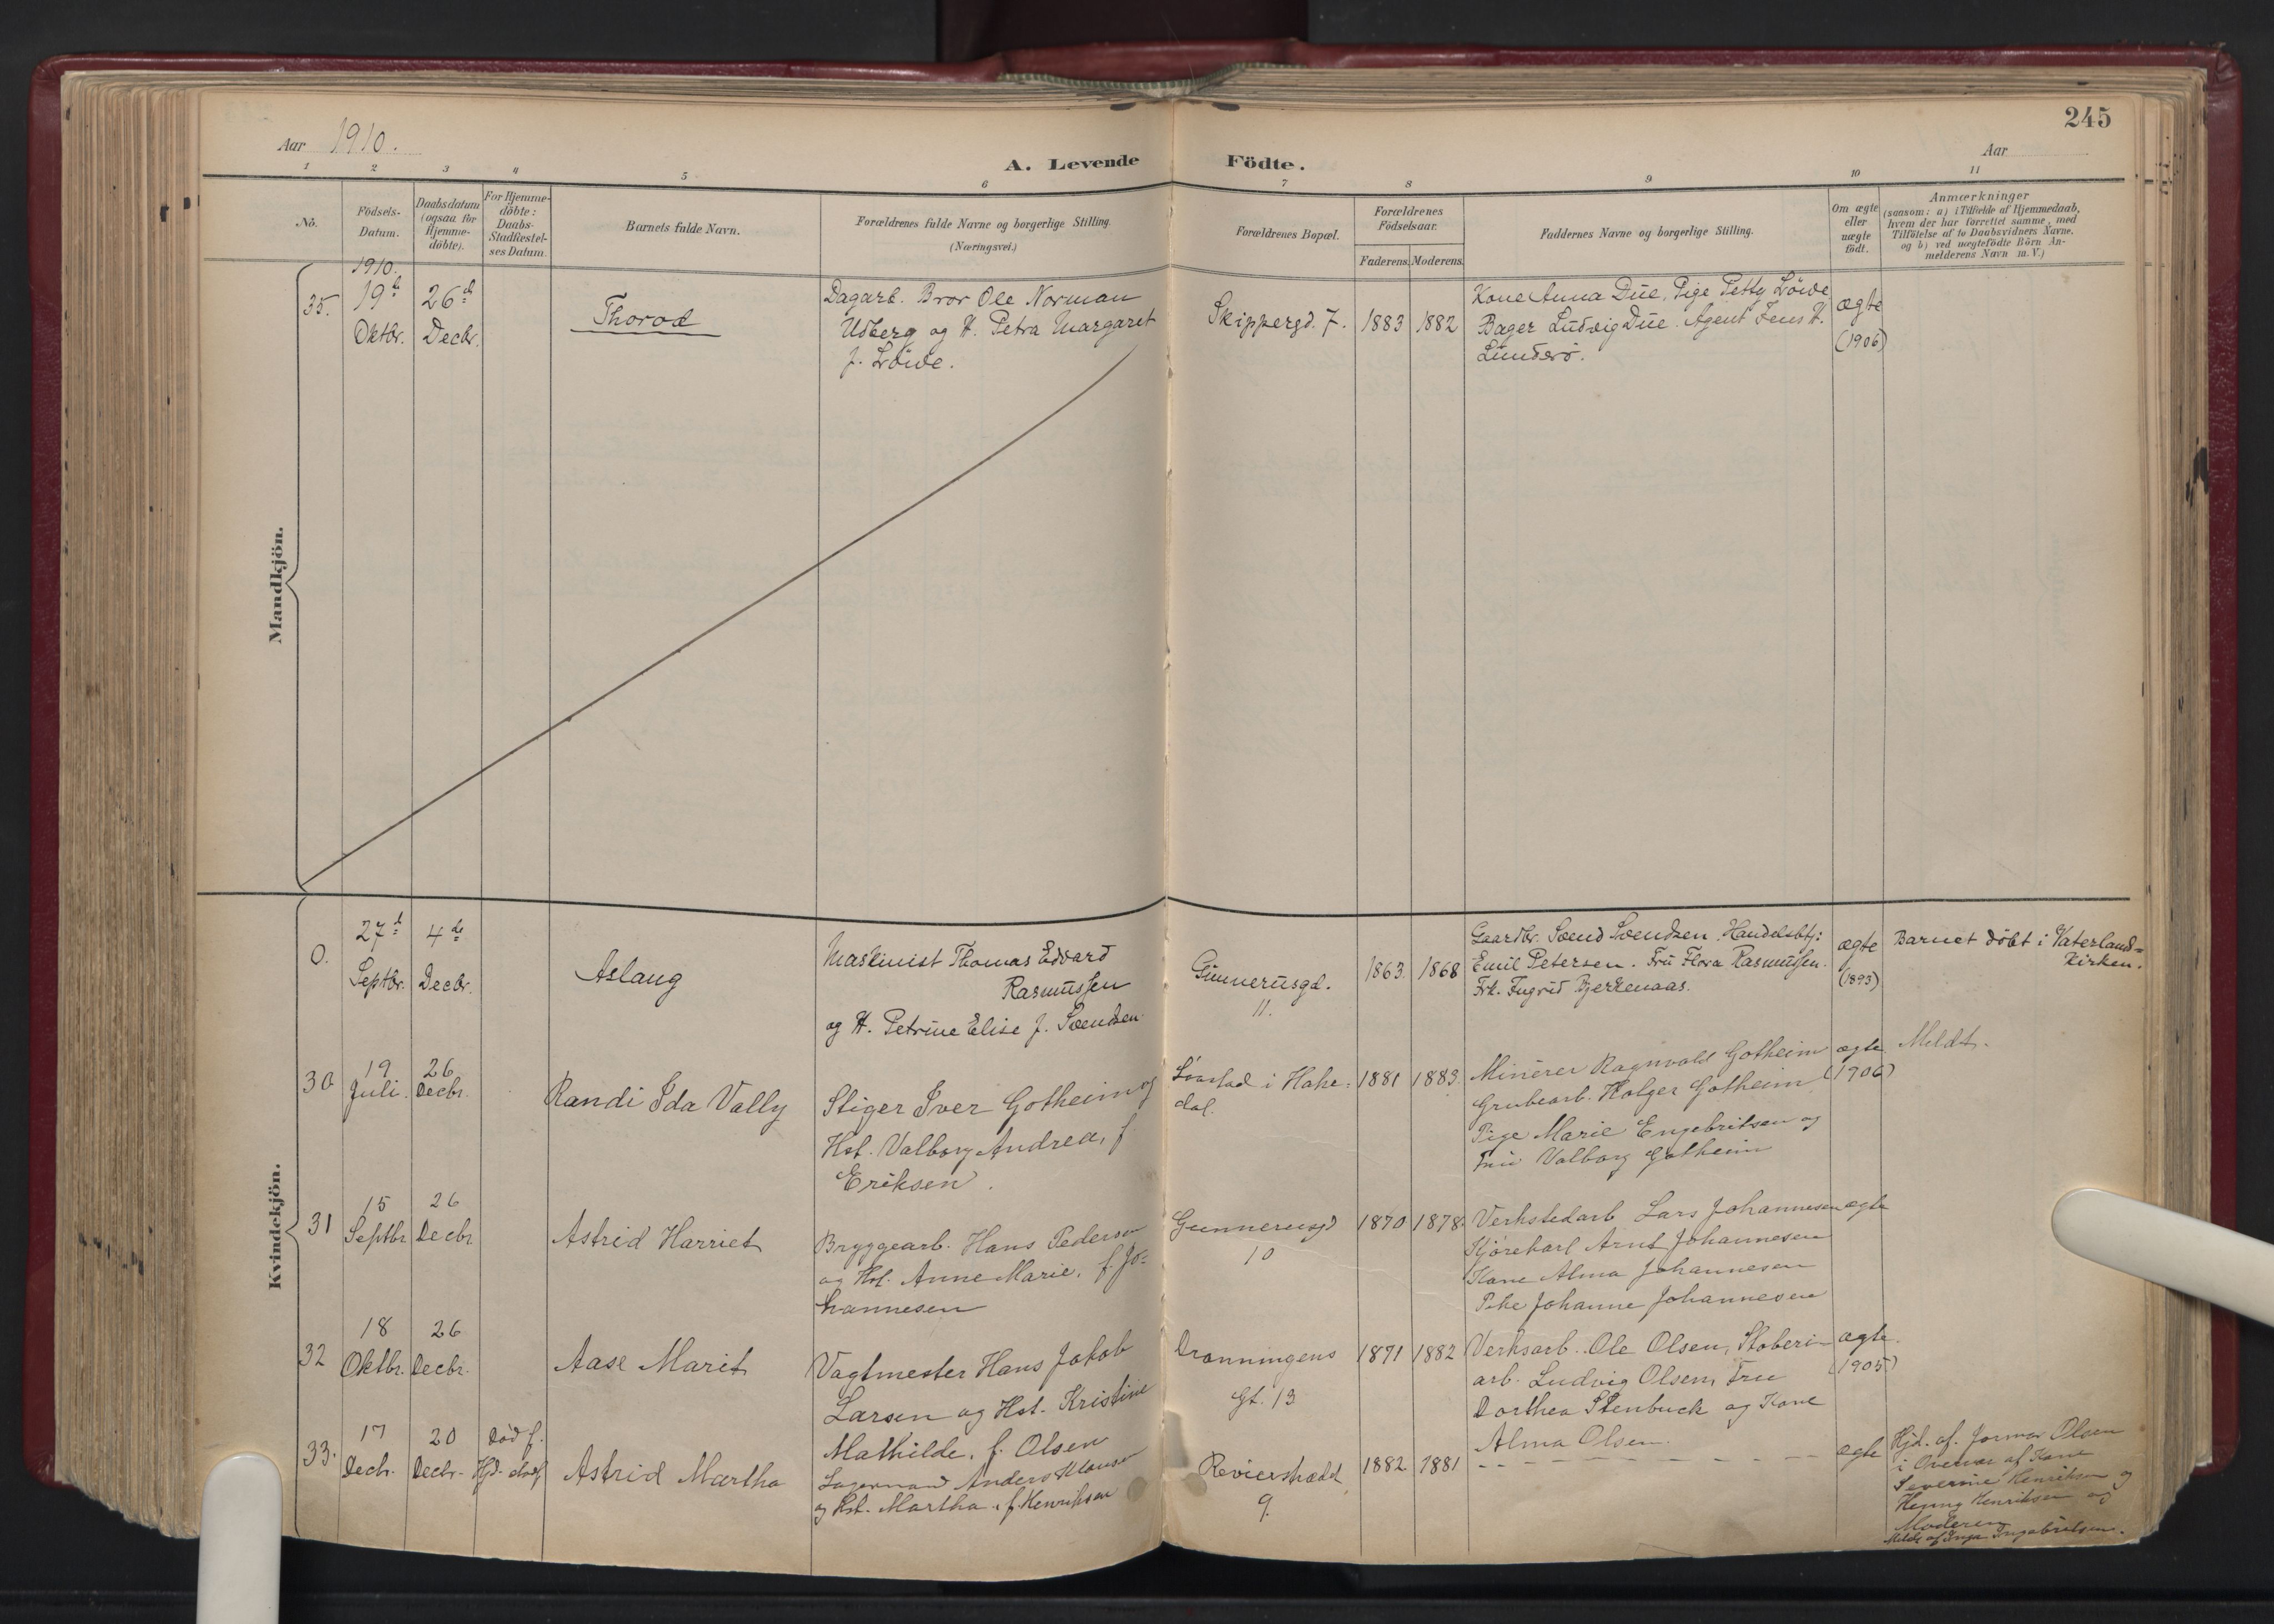 245
Aar 1910.
A. Levende Födte.
Aar
1 2 3 4 5 6 7 8 9 10 11
No.
Födsels-
Datum.
Daabsdatum
(ogsaa for
Hjemme-
döbte).
For Hjemme-
döbte:
Daabs-
Stadfæstel-
ses Datum.
Barnets fulde Navn.
Forældrenes fulde Navne og borgerlige Stilling.
(Næringsvei.)
Forældrenes Bopæl.
Forældrenes
Födselsaar.
Faderens. Moderens.
Faddernes Navne og borgerlige Stilling.
Om ægte
eller
uægte
födt.
Anmærkninger
(saasom: a) i Tilfælde af Hjemmedaab,
hvem der har forrettet samme, med
Tilföielse af to Daabsvidners Navne.
og b) ved uægtefödte Börn An-
melderens Navn m.V.)
Mandkjön.
1910.
35.
19de
Oktbr.
26de
Decbr.
Thorod
Dagarb. Bror Ole Norman
Udberg og H. Petra Margaret
f. Löwe.
Skippergd. 7.
1883 1882
Kone Anna Due, Pige Petty Löwe
Bager Ludvig Due. Agent Jens H.
Lunderö.
ægte
(1906)
Kvindekjön.
0.
27de
Septbr.
4de
Decbr.
Aslaug
Maskinist Thomas Edvard
Rasmussen
og H. Petrine Elise f. Svendsen
Gunnerusgd.
11.
1863. 1868
Gaardbr. Svend Svendsen. Handelsbtj:
Emil Petersen. Fru Flora Rasmussen.
Frk. Ingrid Bjerkenaas.
ægte
(1895)
Barnet döbt i Vaterland=
kirken.
30
19
Juli.
26
Decbr.
Randi Ida Vally
Stiger Iver Gotheim og
Hst. Valborg Andrea, f
Eriksen.
i Hake=
dal.
1881 1883.
Minerer Ragnvald Gotheim
Grubearb. Holger Gotheim
Pige Marie Engebritsen og
Fru Valborg Gotheim
ægte
(1906)
Meldt.
31
15
Septbr
26
Decbr
Astrid Harriet
Bryggearb. Hans Pedersen
og Hst. Anne Marie, f. Jo=
hannesen
Gunnerusgd
10
1870 1878.
Verkstedarb Lars Johannesen
Kjörekarl Arnt Johannesen
Kone Alma Johannesen
Pike Johanne Johannesen
ægte
32
18
Oktbr.
26
Decbr.
Aase Marit
Vagtmester Hans Jakob
Larsen og Hst. Kristine
Mathilde, f. Olsen
Dronningens
Gt. 13
1871 1882
Verksarb. Ole Olsen, Stoberi-
arb. Ludvig Olsen, Fru
Dorthea Stenbuck og Kone
Alma Olsen.
ægte.
(1905)
33.
17
Decbr.
20
Decbr.
död f.
Astrid Martha
Lagermand Anders Klausen
og Hst. Martha, f. Henriksen
Revierstrædet
9.
1882. 1881
ægte
Hjd. af. Jormor Olsen
i Overvær af Kone
Severine Henriksen og
Henny Henriksen og
Moderen
Meldt af Inga Ingebritsen.